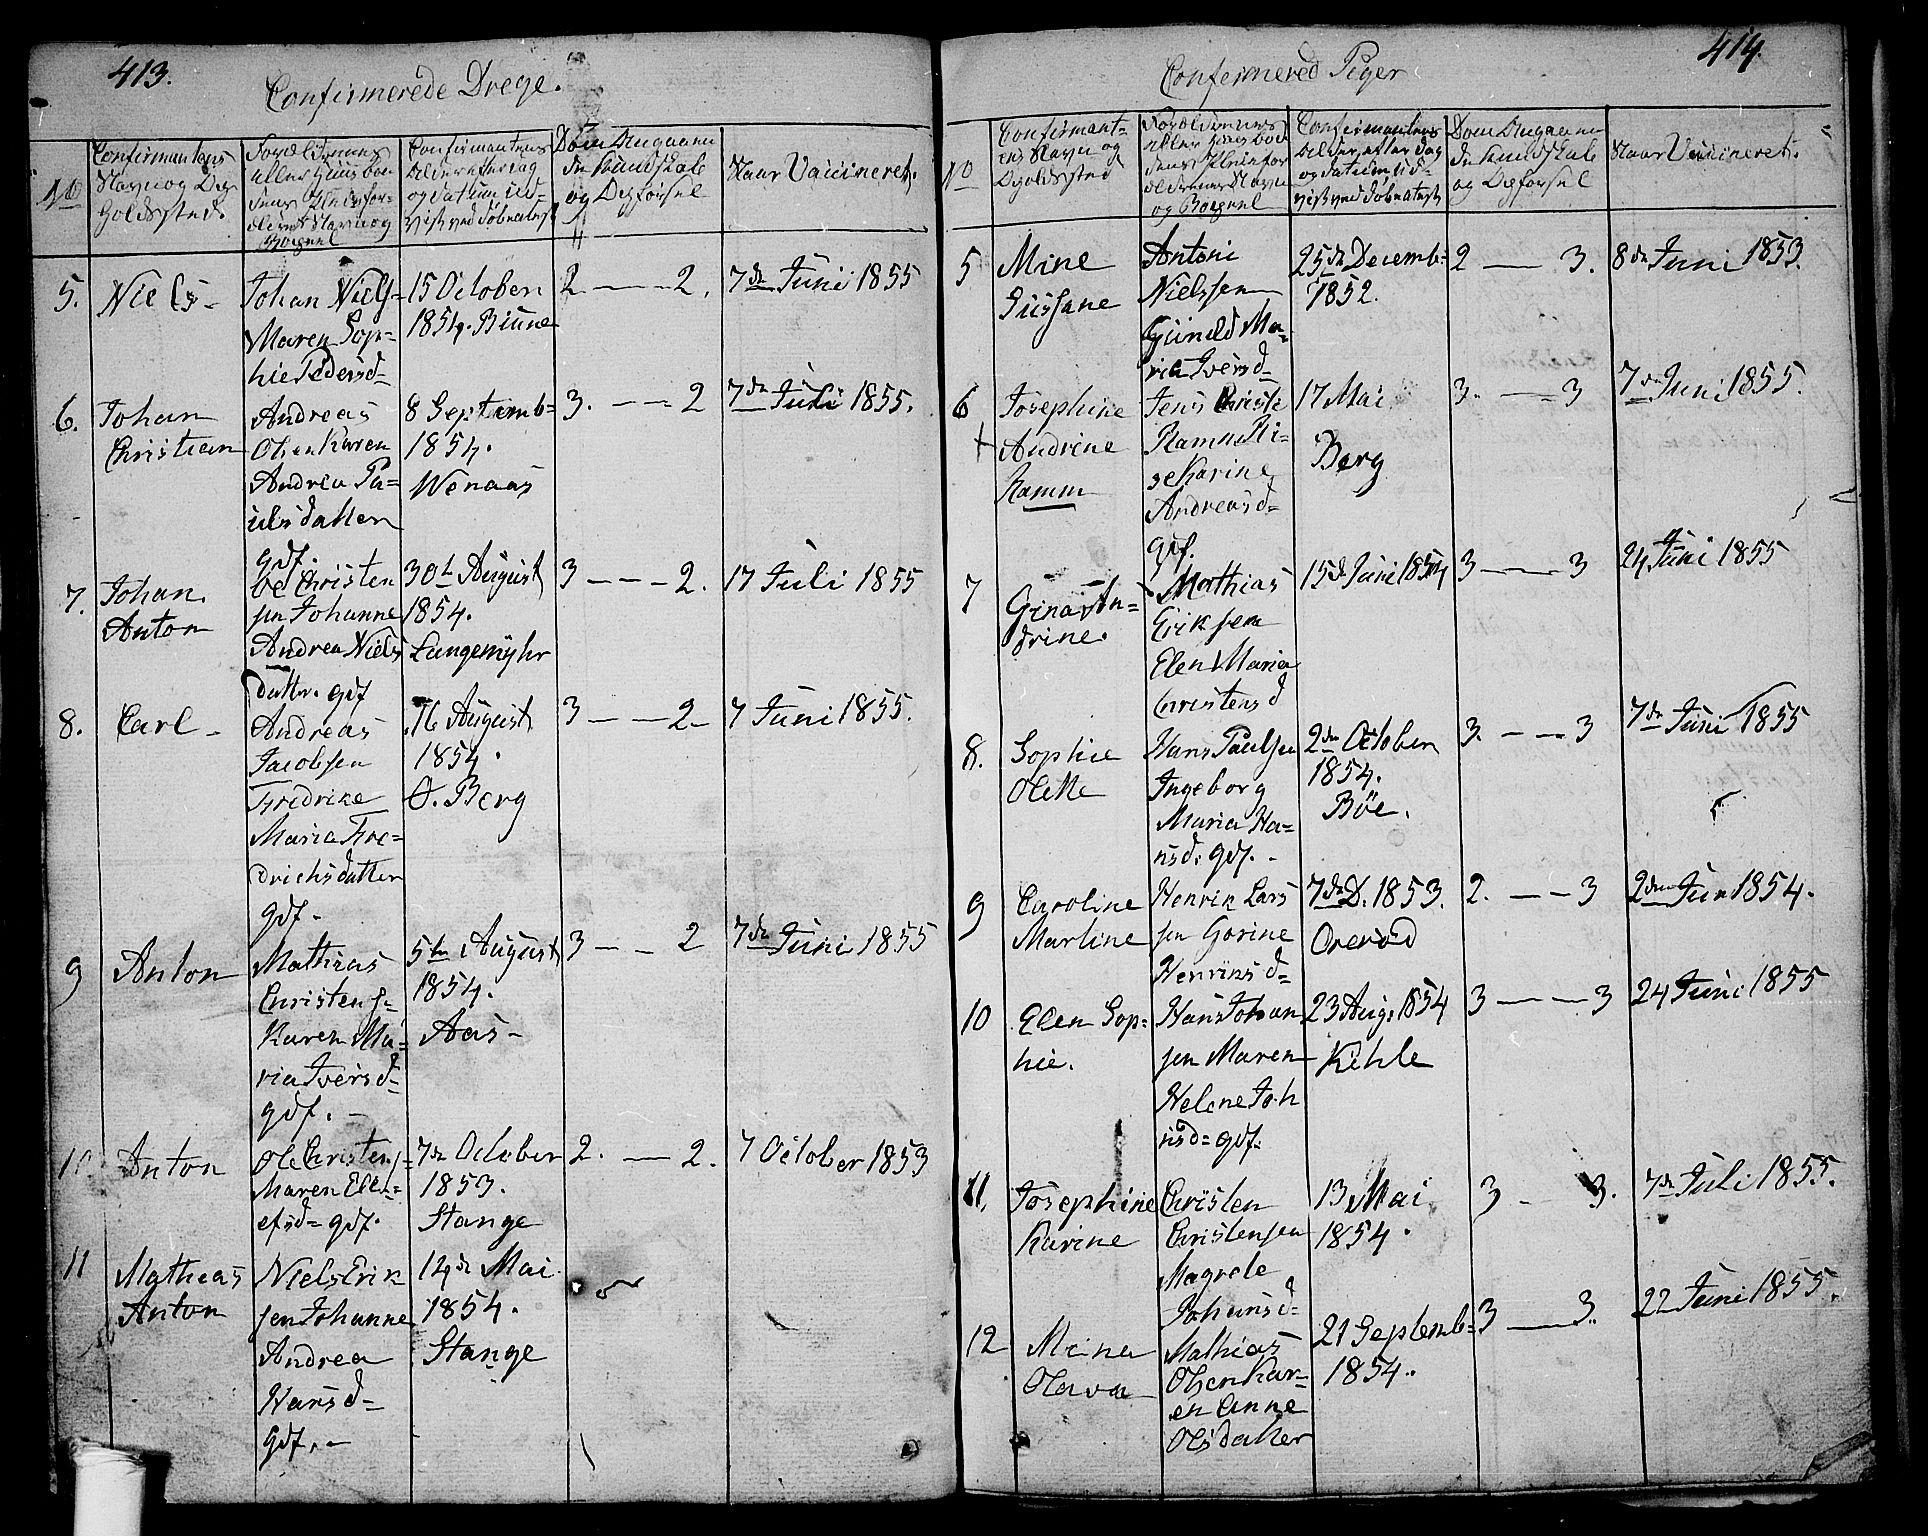 413.
Confirmerede Drege.
No
Confirmantens
Navn og Op
holdssted.
Forældrenes
eller Huusbon
Navn og
Confirmantens
Alder efter dag
og datum
Dom Angaaen
de Kundskab
og Opførsel
Naar Vaccineret.
5.
Niels -
Johan Niels-
Maren Sop-
hie Pedersd-
15 October
1854. Biune
2 - - - 2.
7de Juni 1855
6.
Johan
Christian
Andreas
Olsen Karen
Andrea Pa=
ulsdatter
gdf.
8 Septemb=
1854.
Wenaas
3. - - - 2
7de Juli 1855.
7.
Johan.
Anton
Ole Christen
sen Johanne
Andrea Niels
datter. gdf
30te August
1854.
Langemyhr
3 - - - 2.
17 Juli 1855
8.
Carl -
Andreas
Jacobsen
Fredrike
Maria Fre=
drichsdatter
gdf.
16 August
1854.
O. Berg
3 - - - 2 -
7 Juni 1855.
9
Anton
Mathias
Christens-
Karen Ma=
ria Iversd-
gdf. -
5te August
1854.
Aas -
3 - - 2
7de Juni 1855
10
Anton
Ole Christens-
Maren Ell=
efsd= gdf.
7de October
1853.
Stange
2. - - 2.
7 October 1853
11
Mathias
Anton
Niels Erik
sen Johanne
Andrea
Hansd-
gdf. -
14de Mai
1854.
Stange
414.
Confirmered Piger
No
Confirmant=
ens Navn og
Opholdssted
Forældrenes
eller Huusbon
og Boepæl
Confirmantens
Alder efter dag
og datum
Dom Angaaen
de Kundskab
og Opførsel
Naar Vaccineret.
5
Mine
Sussane
Antoni
Nielssen
Gunild Ma=
ria Iversd-
25de Decemb=
1852.
2 - 3.
8de Juni 1853.
6
+
Josephine
Andrine
Ramm
Jens Christi
Ramm
Karine
Andreasd=
gdf.
17 Mai
Berg
3. - - 3
7de Juni 1855.
7
Gina An=
drine.
Mathias
Eriksen
Elen Maria
Christensd
15de Juni 1854
3 - - 3
24 Juni 1855
8.
Sophie
Olette
Hans Paulsen
Ingeborg
Maria Ha=
nsd. gdf. -
2den October
1854.
Böe.
3. - - 3
7de Juni 1855
9
Caroline
Martine
Henrik Lars
sen Gorine
Henriksd=
7de D. 1853.
Orerød
2. - - 3
2den Jun 1854.
10
Elen Sop=
hie.
Hans Johan
sen Maren
Helene Joh
nsd= gdf.
23 Aug: 1854
Kihle
3 - - 3
24 Juni 1855
11.
Josephine
Karine
Christen
Christensen
Magrete
Johansd=
13 Mai
1854.
3 - 3.
7de Juli 1855.
12
Mina
Olava
Mathias
Olsen Kar=
en Anne
Olsdatter
21 Septemb=
1854.
3 - 3.
22 Juni 1855.